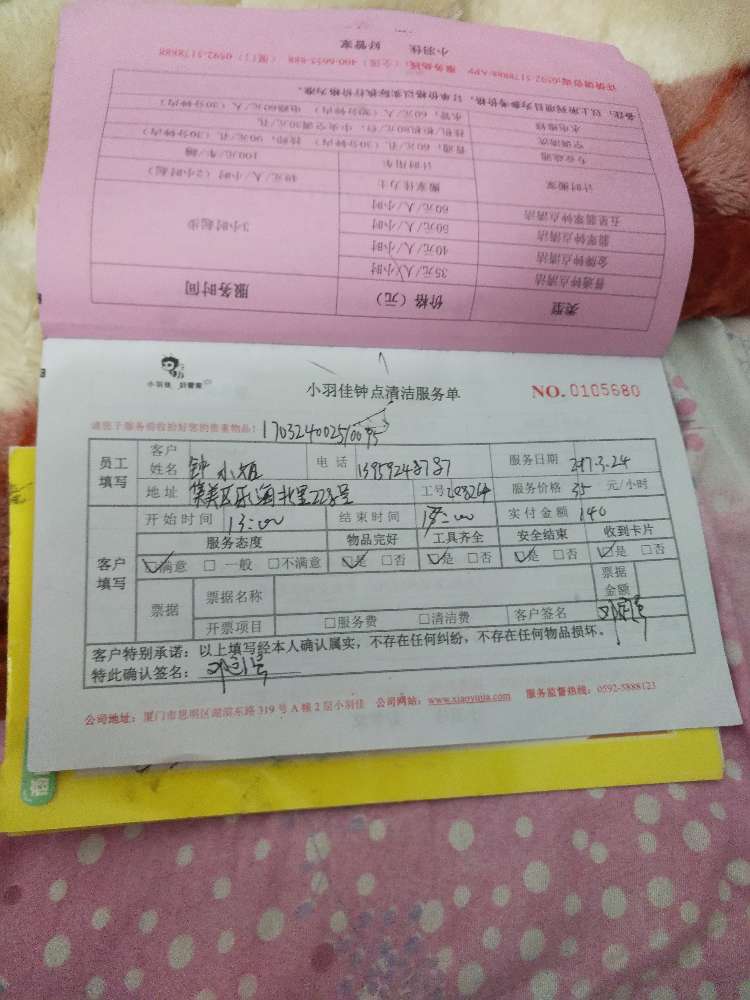 小羽佳 好管家
详情请登陆0592-5178888-APP 服务热线:(全国)400-6055-888 (厦门)0592-5178888
备注:以上所列项目为参考价格,订单价格以实际执行价格为准。
水电维修 水管,60元/人(30分钟内) 电路60元/人(30分钟内)
空调清洗 挂机/柜机80元/台,中央空调30元/孔
专业疏通 普通,60元/孔(30分钟内) 特种,90元/孔(30分钟内)
计时用车 100元/车/趟
计时搬家 搬家佳力士 40元/人/小时(2小时起)
五星翡翠钟点清洁 60元/人/小时
翡翠钟点清洁 50元/人/小时 3小时起步
金牌钟点清洁 40元/人/小时
普通钟点清洁 35元/人/小时
类型 价格(元) 服务时间
小羽佳 好管家
小羽佳钟点清洁服务单
NO. 0105680
请您于服务前收拾好您的贵重物品!
员工填写 客户姓名 钟小姐 电话 13959248787 服务日期 2017.3.24
地址 集美区乐海北里228号 工号 服务价格 35 元/小时
开始时间 13:00 结束时间 实付金额 140
客户填写 服务态度 物品完好 工具齐全 安全结束 收到卡片
☑满意 □一般 □不满意 ☑是 □否 ☑是 □否 ☑是 □否 ☑是 □否
票据 票据名称 票据金额
开票项目 □服务费 □清洁费 客户签名
客户特别承诺:以上填写经本人确认属实,不存在任何纠纷,不存在任何物品损坏。
特此确认签名:
公司地址:厦门市思明区湖滨东路319号A栋2层小羽佳 公司网站:www.xiaoyujia.com 服务监督热线:0592-5888123